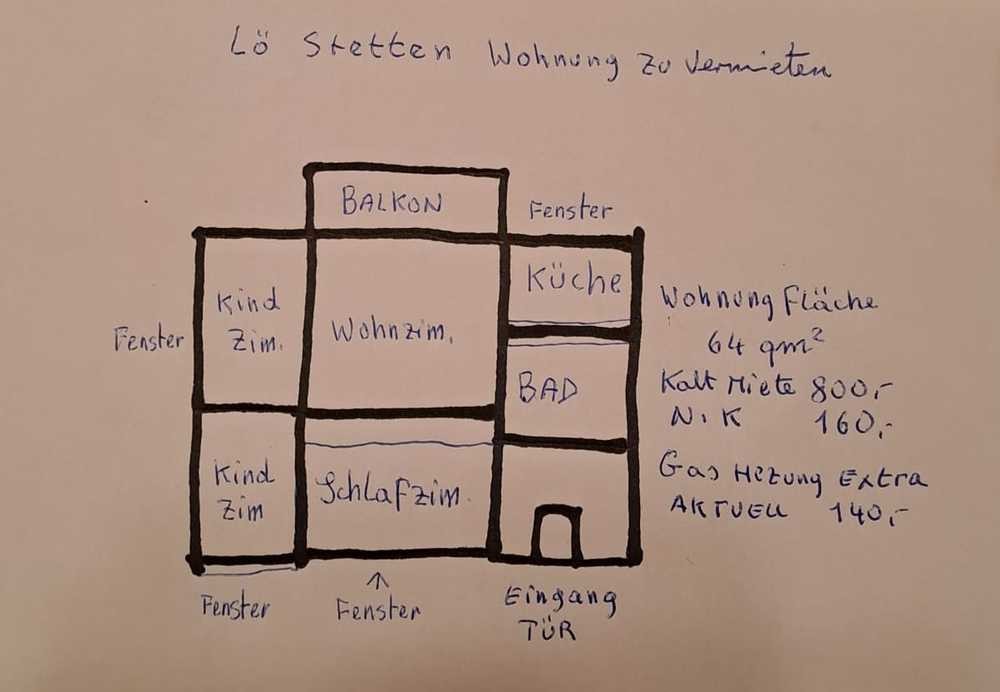 Lö Stetten Wohnung zu vermieten
BALKON
Fenster
Küche
Kind
Zim.
Wohnzim.
Fenster
BAD
Wohnung Fläche
64 qm²
Kalt Miete 800,-
N.K 160,-
Gas Hezung Extra
AKTUELL 140,-
Kind
Zim
Schlafzim.
Fenster
Fenster
Eingang
TÜR